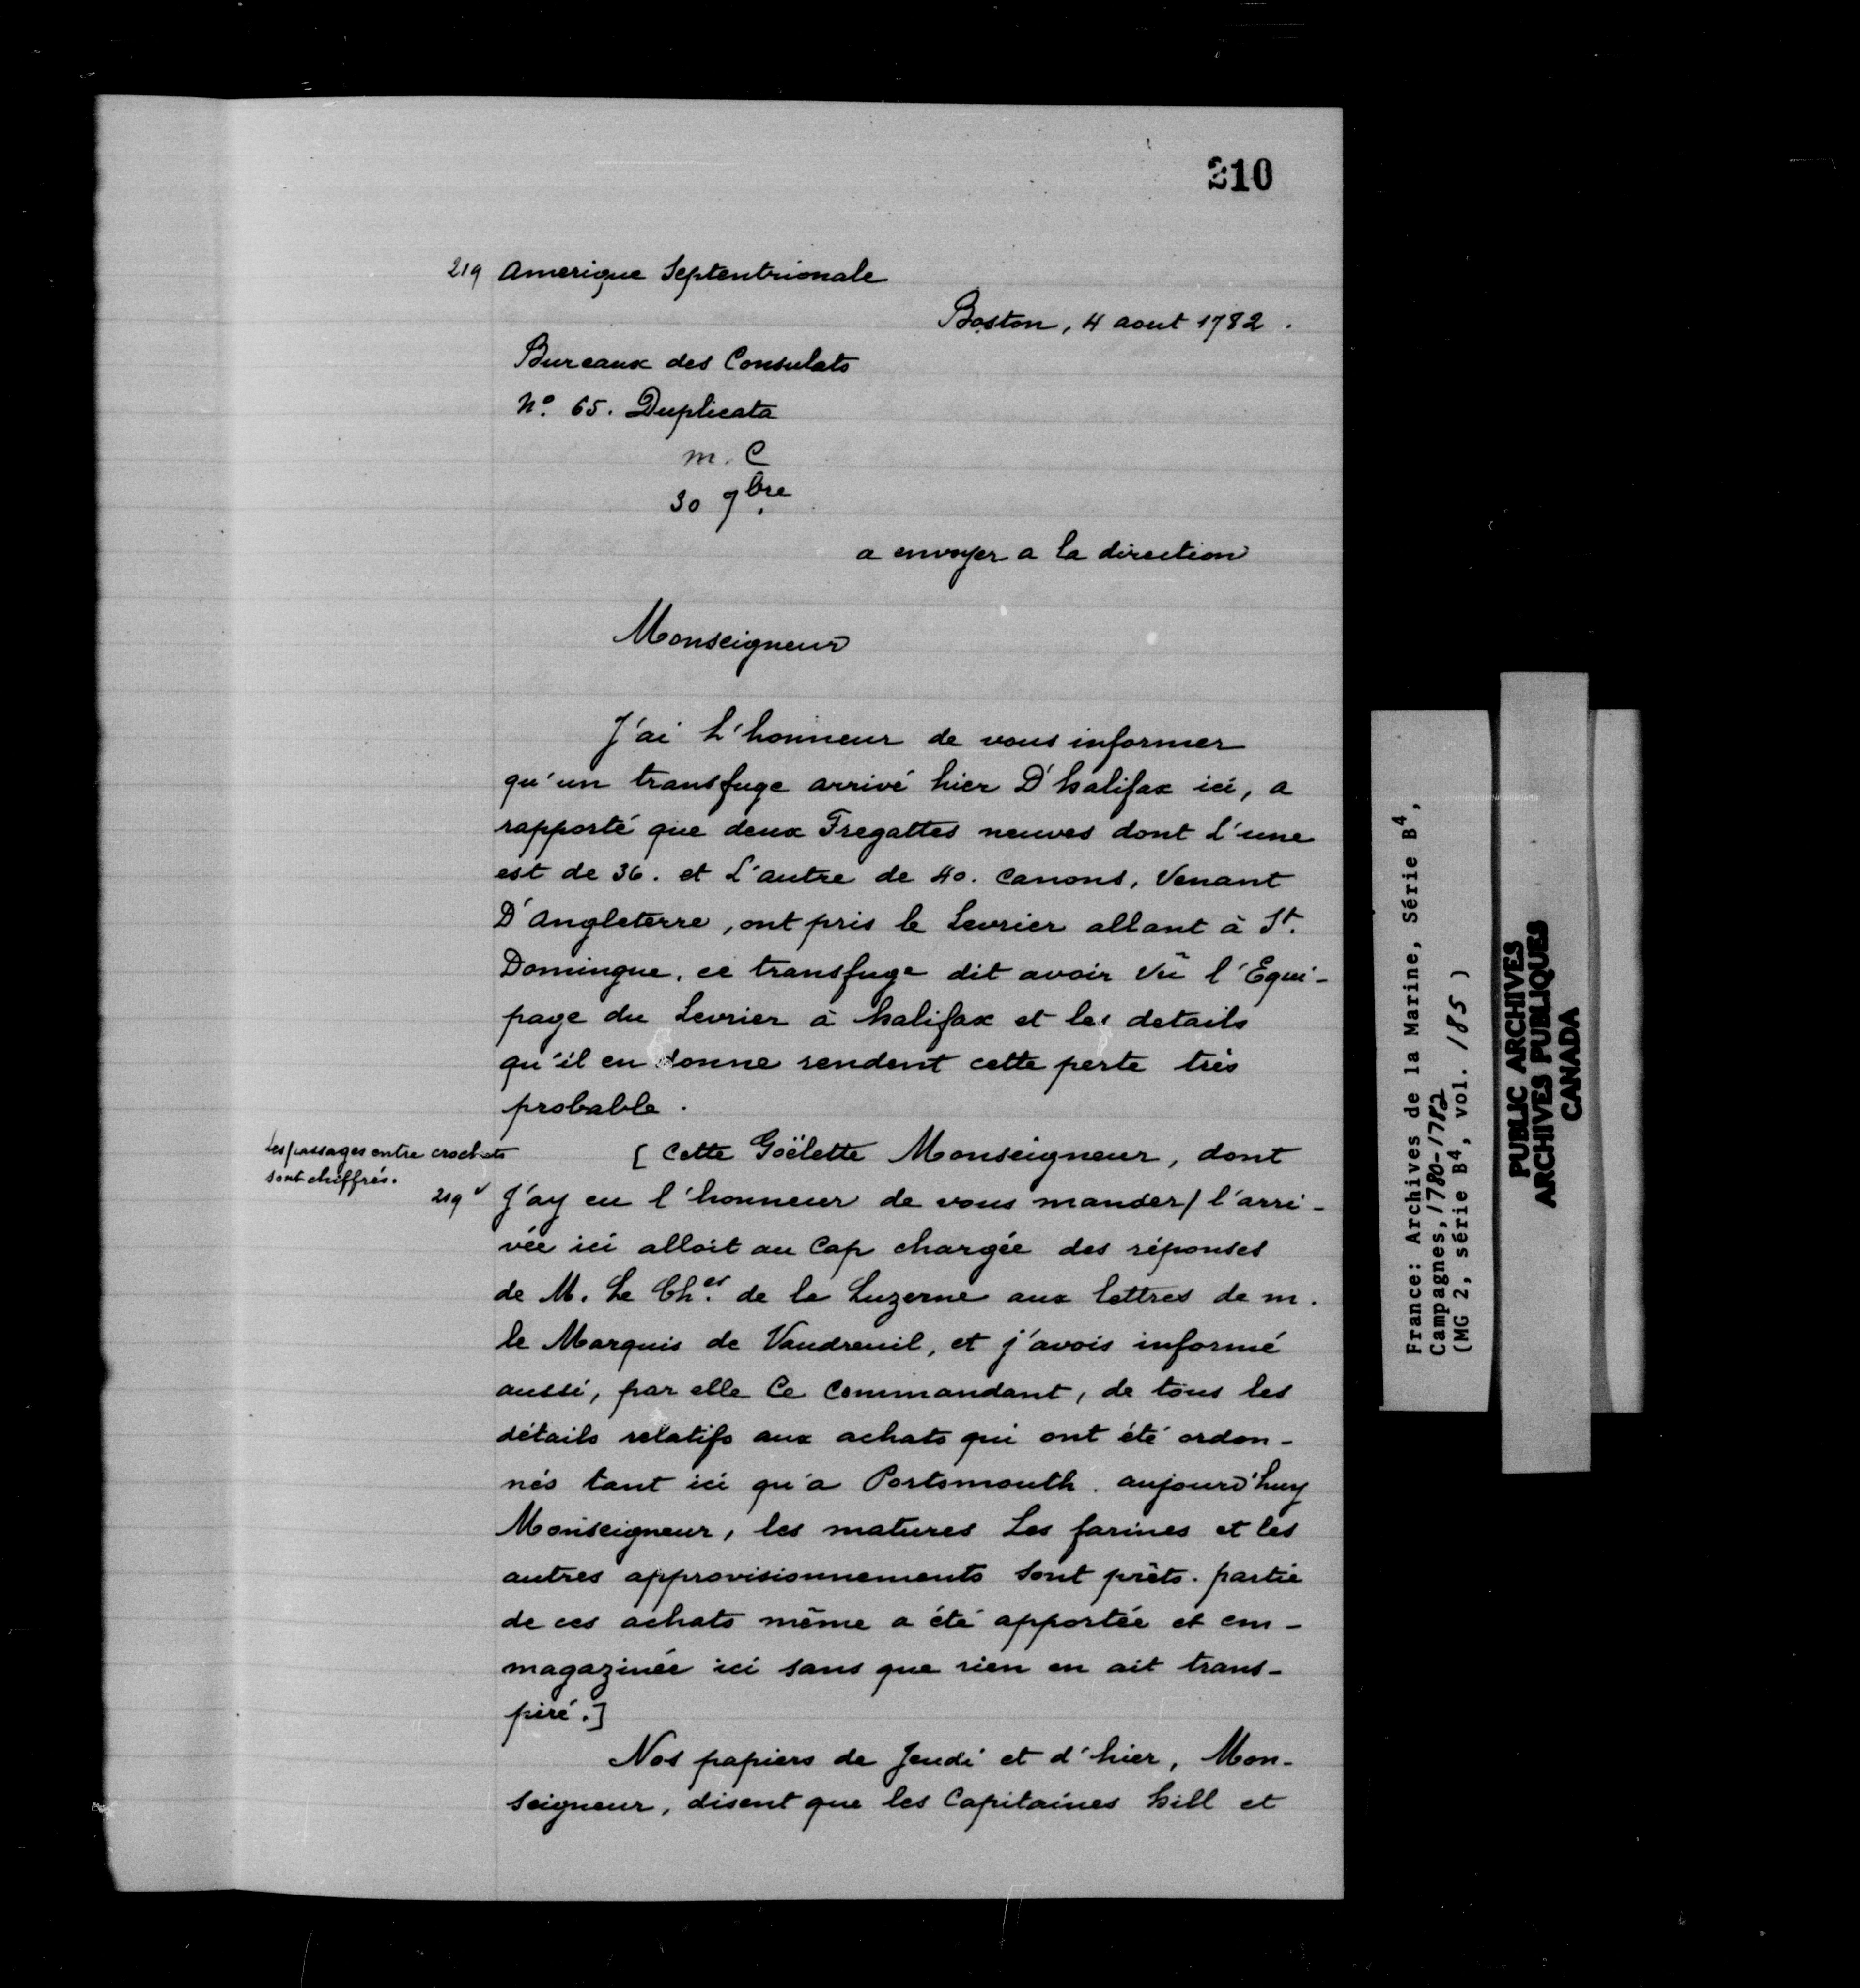 210
219 Amerique Septentrionale
Boston, 4 aout 1782.
Bureaux des Consulats
Nº. 65. Duplicata
m. C
30 9bre.
a envoyer a la direction
Monseigneur
J'ai L'honneur de vous informer
qu'un transfuge arrivé hier D'halifax ici, a
rapporté que deux Fregattes neuves dont l'une
est de 36. et L'autre de 40. Canons, Venant
D'Angleterre, ont pris le Levrier allant à St.
Domingue, ce transfuge dit avoir vû l'Equi-
page du Levrier à halifax et les details
qu'il en donne rendent cette perte très
probable.
Les passages entre crochets
sont chiffrés.
[ Cette Goëlette Monseigneur, dont
219v J'ay eu l'honneur de vous mander/ l'arri-
vée ici alloit au Cap chargée des réponses
de M. Le Cher. de la Luzerne aux lettres de m.
le Marquis de Vaudreuil, et j'avois informé
aussi, par elle Ce Commandant, de tous les
détails relatifs aux achats qui ont été ordon-
nés tant ici qu'a Portsmouth. aujourd'huy
Monseigneur, les matures Les farines et les
autres approvisionnements sont prêts. partie
de ces achats même a été apportée et em-
magazinée ici sans que rien en ait trans-
piré.]
Nos papiers de Jeudi et d'hier, Mon-
seigneur, disent que les Capitaines hill et
France: Archives de la Marine, Série B4,
Campagnes, 1780-1782
(MG 2, série B4, vol. 185 )
PUBLIC ARCHIVES
ARCHIVES PUBLIQUES
CANADA